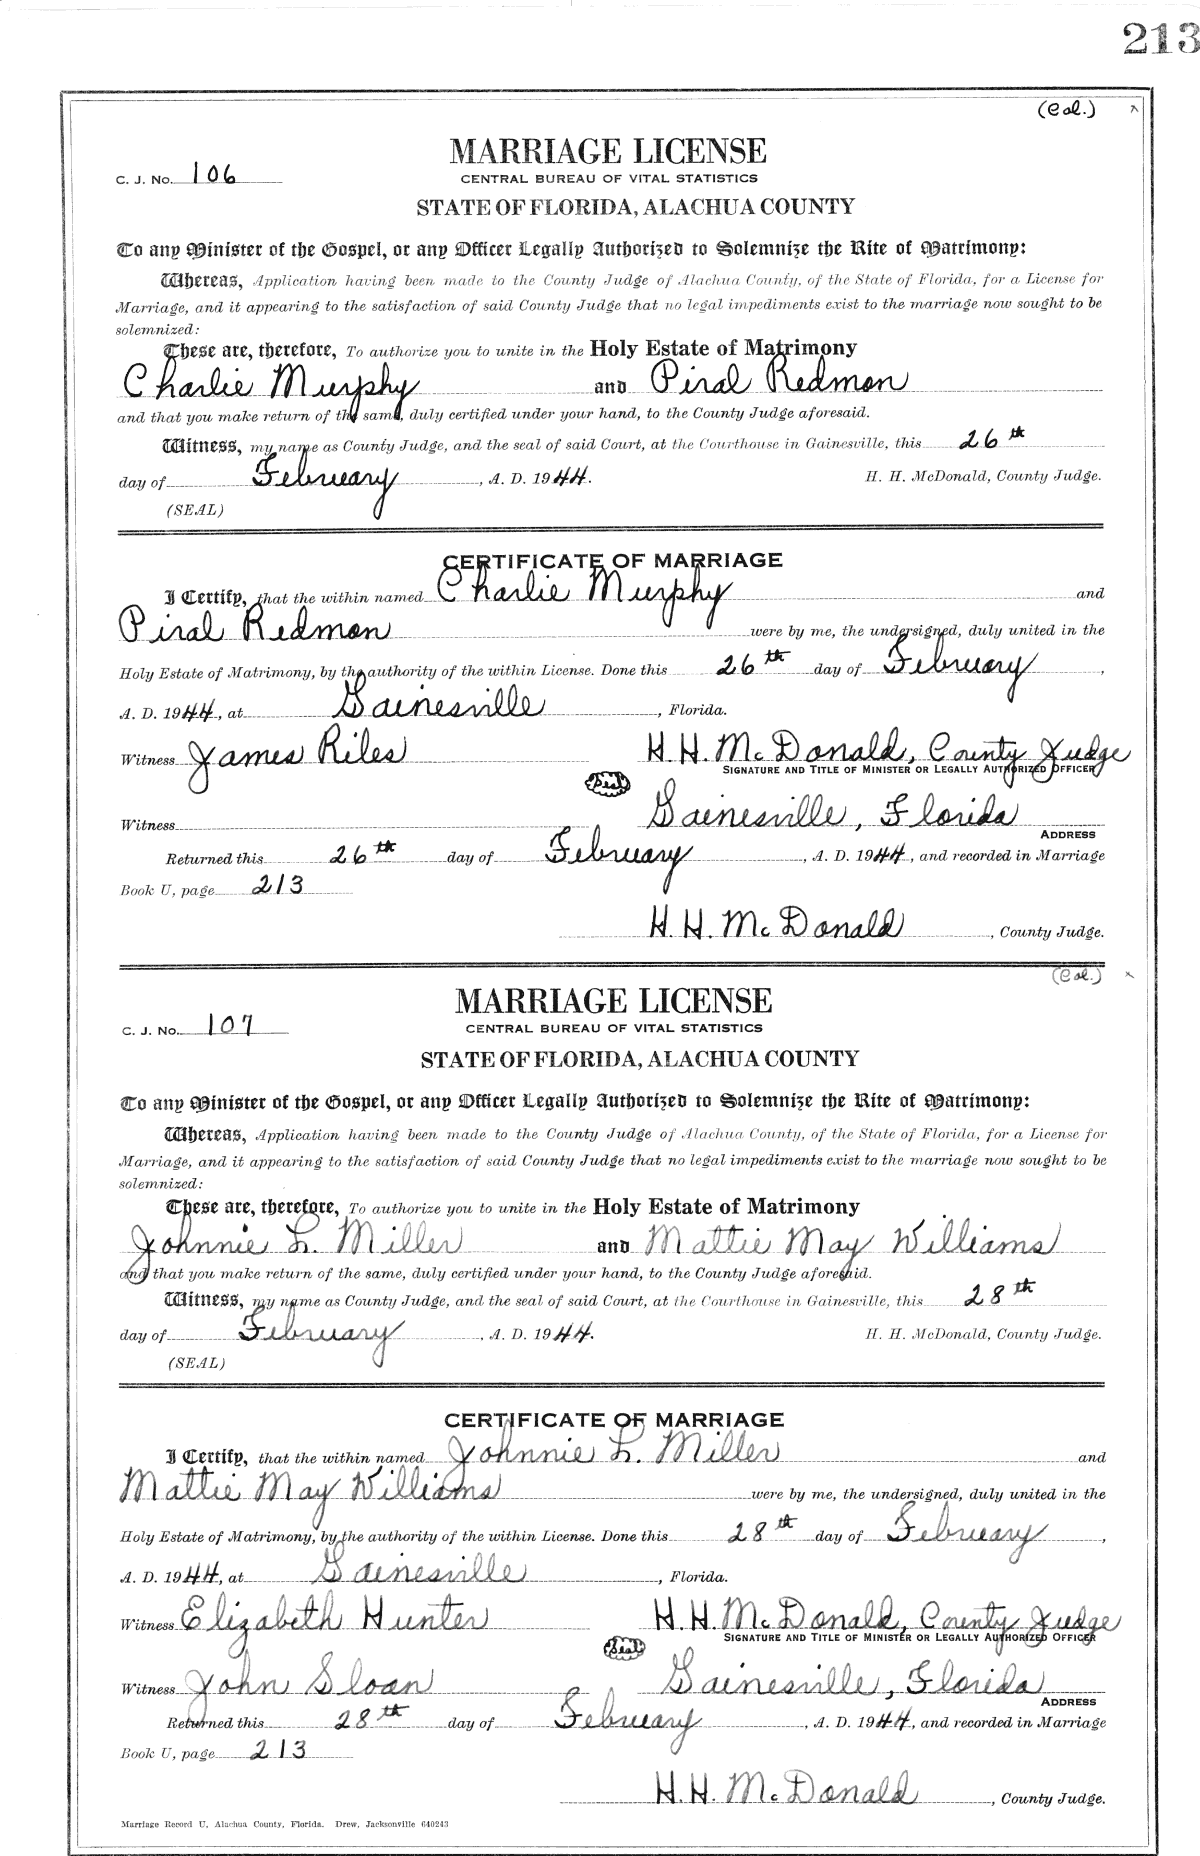 213
(Col.)
MARRIAGE LICENSE
C. J. No. 106
CENTRAL BUREAU OF VITAL STATISTICS
STATE OF FLORIDA, ALACHUA COUNTY
To any Minister of the Gospel, or any Officer Legally Authorized to Solemnize the Rite of Matrimony:
Whereas, Application having been made to the County Judge of Alachua County, of the State of Florida, for a License for
Marriage, and it appearing to the satisfaction of said County Judge that no legal impediments exist to the marriage now sought to be
solemnized:
These are, therefore, To authorize you to unite in the Holy Estate of Matrimony
Charlie Murphy and Piral Redmon
and that you make return of the same, duly certified under your hand, to the County Judge aforesaid.
Witness, my name as County Judge, and the seal of said Court, at the Courthouse in Gainesville, this 26th
day of February, A. D. 1944. H. H. McDonald, County Judge.
(SEAL)
CERTIFICATE OF MARRIAGE
I Certify, that the within named Charlie Murphy and
Piral Redmon were by me, the undersigned, duly united in the
Holy Estate of Matrimony, by the authority of the within License. Done this 26th day of February,
A. D. 1944, at Gainesville, Florida.
Witness James Riles H. H. McDonald, County Judge
SIGNATURE AND TITLE OF MINISTER OR LEGALLY AUTHORIZED OFFICER
Seal
Gainesville, Florida
Witness
ADDRESS
Returned this 26th day of February, A. D. 1944, and recorded in Marriage
Book U, page 213
H. H. McDonald, County Judge.
(Col.)
MARRIAGE LICENSE
C. J. No. 107
CENTRAL BUREAU OF VITAL STATISTICS
STATE OF FLORIDA, ALACHUA COUNTY
To any Minister of the Gospel, or any Officer Legally Authorized to Solemnize the Rite of Matrimony:
Whereas, Application having been made to the County Judge of Alachua County, of the State of Florida, for a License for
Marriage, and it appearing to the satisfaction of said County Judge that no legal impediments exist to the marriage now sought to be
solemnized:
These are, therefore, To authorize you to unite in the Holy Estate of Matrimony
Johnnie L. Miller and Mattie May Williams
and that you make return of the same, duly certified under your hand, to the County Judge aforesaid.
Witness, my name as County Judge, and the seal of said Court, at the Courthouse in Gainesville, this 28th
day of February, A. D. 1944. H. H. McDonald, County Judge.
(SEAL)
CERTIFICATE OF MARRIAGE
I Certify, that the within named Johnnie L. Miller and
Mattie May Williams were by me, the undersigned, duly united in the
Holy Estate of Matrimony, by the authority of the within License. Done this 28th day of February,
A. D. 1944, at Gainesville, Florida.
Witness Elizabeth Hunter H. H. McDonald, County Judge
SIGNATURE AND TITLE OF MINISTER OR LEGALLY AUTHORIZED OFFICER
Seal
Witness John Sloan Gainesville, Florida
ADDRESS
Returned this 28th day of February, A. D. 1944, and recorded in Marriage
Book U, page 213
H. H. McDonald, County Judge.
Marriage Record U, Alachua County, Florida. Drew, Jacksonville 640243